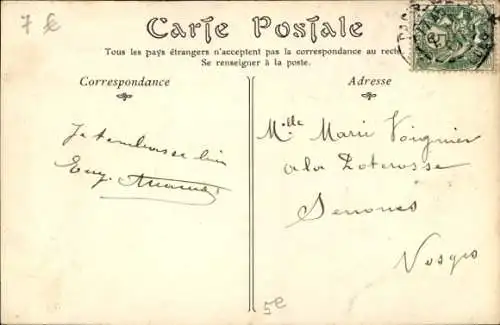 7 €
Carte Postale
Tous les pays étrangers n'acceptent pas la correspondance au recto
Se renseigner à la poste.
Correspondance
Adresse
Je t'embrasse bien
Eug.
Mlle Marie Voignier
a la Poterosse
Senones
Vosges
5e